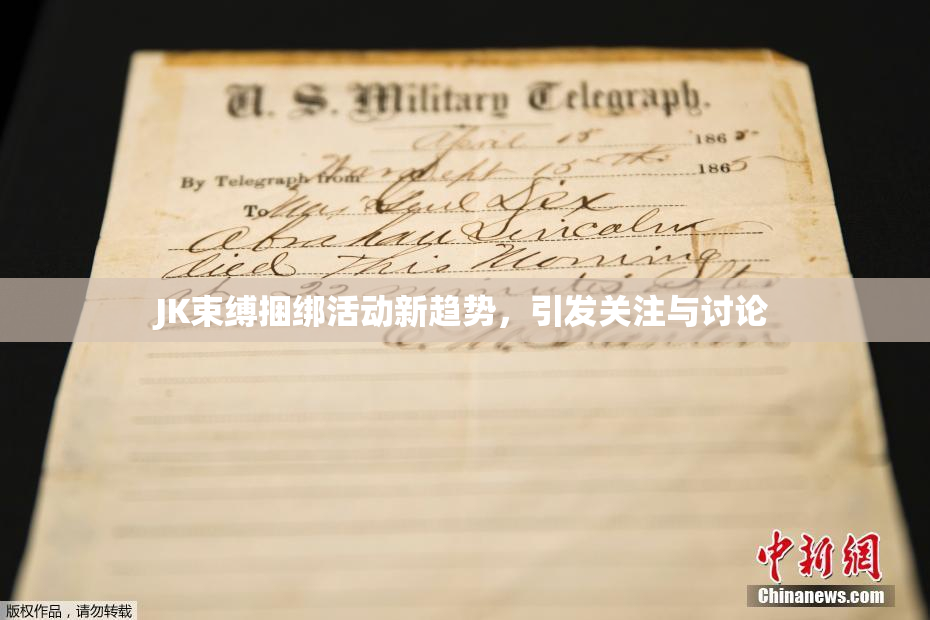 U. S. Military Telegraph.
April 15 1865
By Telegraph from War Dept 15th 1865
To Maj Genl Dix
Abraham Lincoln
died This Morning
at 22 minutes after
JK束缚捆绑活动新趋势，引发关注与讨论
E. M. Stanton
中新网
Chinanews.com
版权作品，请勿转载